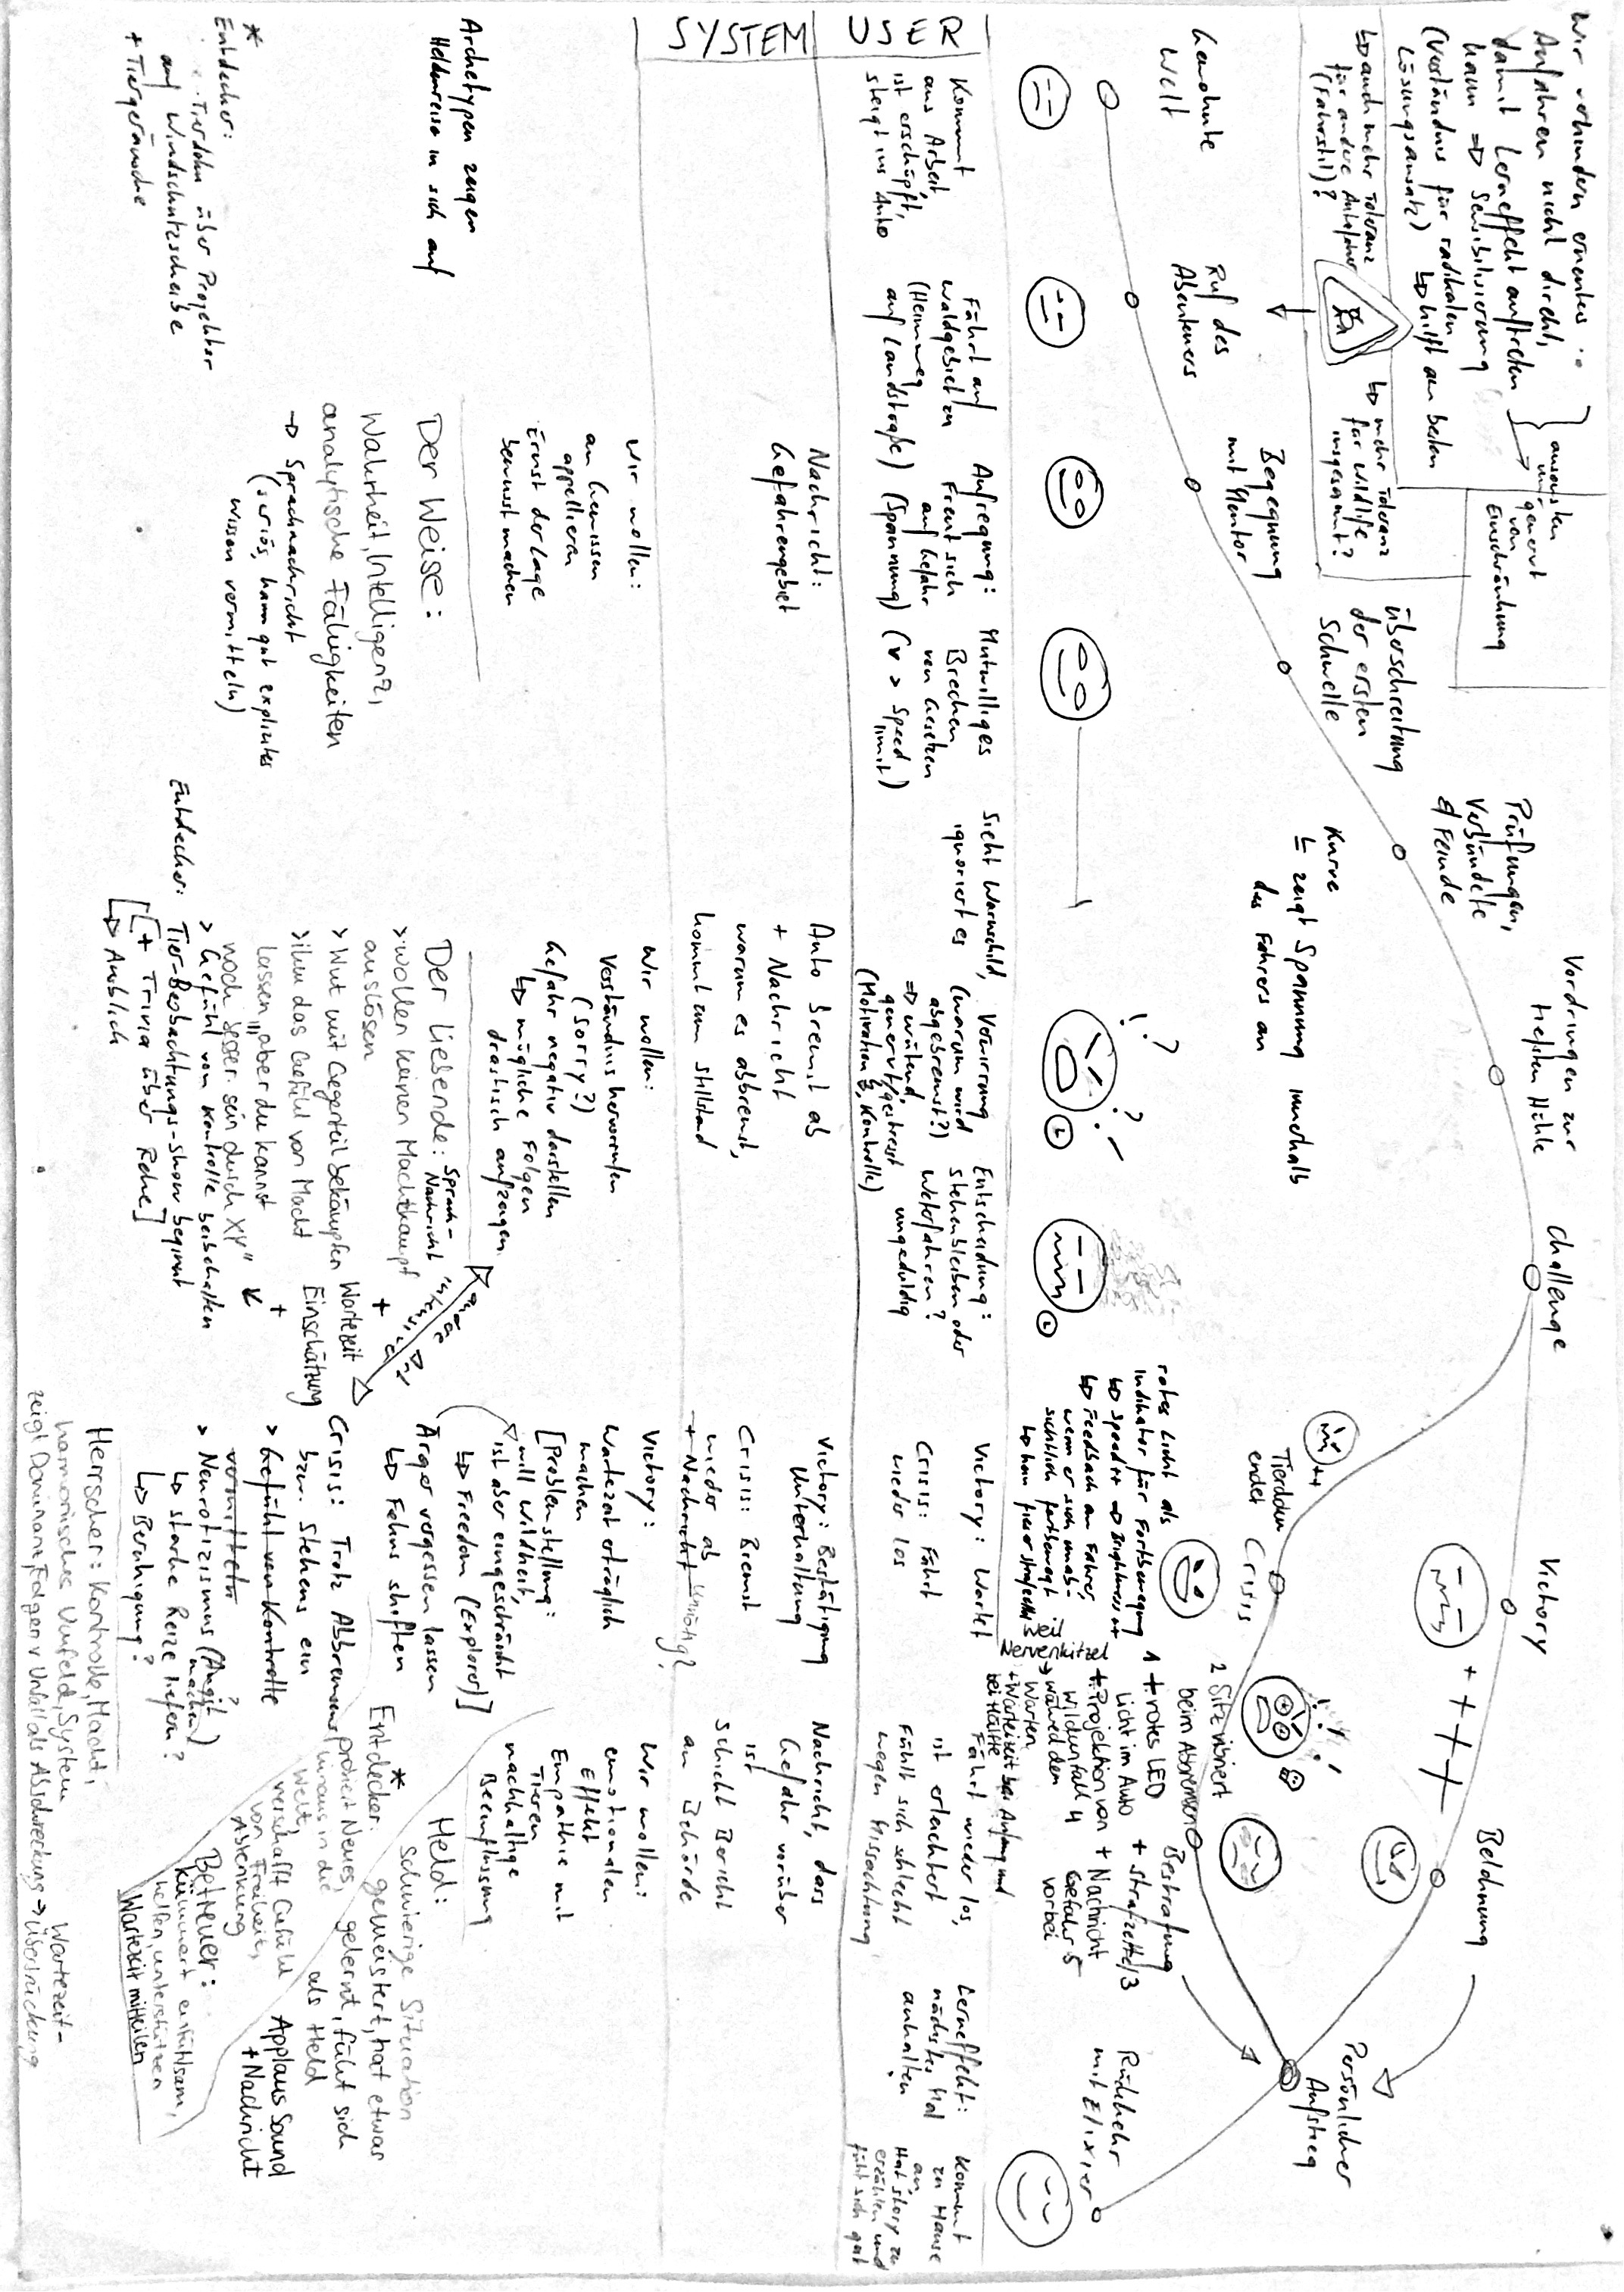 Wir verhindern erneutes
Anfahren nicht direkt,
damit Lerneffekt auftreten
kann => Sensibilisierung
(Verständnis für radikalen
Lösungsansatz)
↳ hilft am besten
ansonsten
nur
genervt
von
Einschränkung
↳ auch mehr Toleranz
für andere Autofahrer
(Fahrstil)?
↳ mehr Toleranz
für Wildlife
insgesamt?
Gewohnte
Welt
Ruf des
Abenteuers
Begegnung
mit Mentor
Überschreitung
der ersten
Schwelle
Prüfungen,
Verbündete
& Feinde
Vordringen zur
tiefsten Höhle
Challenge
Victory
++++
Belohnung
Persönlicher
Aufstieg
Kurve
↳ zeigt Spannung innerhalb
des Fahrers an
++
Tierdoku
endet
Crisis
rotes Licht als
Indikator für Fortbewegung
↳ Speed++ => Brightness++
↳ Feedback an Fahrer,
wenn er sich unab-
sichtlich fortbewegt
↳ kein fieser Strafzettel
weil
Nervenkitzel
2 Sitz vibriert
beim Abbremsen
1 + rotes LED
Licht im Auto
+ Projektion von
Wildunfall 4
währed dem
Warten
+ Wartezeit bei Anfang und
bei Hälfte
Bestrafung
+ Strafzettel 3
+ Nachricht
Gefahr 5
vorbei
Rückkehr
mit Elixier
USER
Kommt
aus Arbeit,
ist erschöpft,
steigt ins Auto
Fährt auf
Waldgebiet zu
(Heimweg
auf Landstraße)
Aufregung:
Freut sich
auf Gefahr
(Spannung)
Mutwilliges
Brechen
von Gesetzen
(v > Speed
limit)
Sieht Warnschild,
ignoriert es
Verwirrung
(warum wird
abgebremst?)
=> wütend,
genervt/gestresst
(Motivation &, Kontrolle)
Entscheidung:
stehenbleiben oder
Weiterfahren?
ungeduldig
Victory: Wartet
Crisis: Fährt
wieder los
Fährt wieder los,
ist erleichtert
Fühlt sich schlecht
wegen Missachtung
Lerneffekt:
nächstes Mal
anhalten
Kommt
zu Hause
an,
Hat Story zu
erzählen und
fühlt sich gut
SYSTEM
Nachricht:
Gefahrengebiet
Auto bremst ab
+ Nachricht
warum es abbremst,
kommt zum Stillstand
Victory: Bestätigung
Unterhaltung
Crisis: Bremst
wieder ab
+ Nachricht unnötig?
Nachricht, dass
Gefahr vorüber
ist
schickt Bericht
an Behörde
Wir wollen:
an Gewissen
appellieren
Ernst der Lage
bewusst machen
Wir wollen:
Verständnis hervorrufen
(sorry?)
Gefahr negativ darstellen
↳ mögliche Folgen
drastisch aufzeigen
Victory:
Wartezeit erträglich
machen
[Problemstellung:
will Wildheit,
ist aber eingeschränkt
↳ Freedom (Explorer)]
Ärger vergessen lassen
↳ Fokus shiften
Wir wollen:
emotionalen
Effekt
Empathie mit
Tieren
nachhaltige
Beeinflussung
Archetypen zeigen
Heldenreise in sich auf
Der Weise:
Wahrheit, Intelligenz,
analytische Fähigkeiten
→ Sprachnachricht
(seriös, kann gut explizites
Wissen vermitteln)
Der Liebende: Sprach-
Nachricht
> wollen keinen Machtkampf
auslösen
> Wut mit Gegenteil bekämpfen
> ihm das Gefühl von Macht
lassen, "aber du kannst
noch besser sein durch XY"
> Gefühl von Kontrolle beibehalten
Entdecker: Tier-Beobachtungs-show beginnt
[+ Trivia über Rehe]
↳ Ausblick
andere Art
intensiver
+
Wartezeit
Einschätzung
+
Crisis: Trotz Abbremsens
bzw. Stehens ein
> Gefühl von Kontrolle
vermitteln
> Neurotizismus (Angst
machen?)
↳ starke Reize liefern?
↳ Beruhigung?
Herrscher: Kontrolle, Macht,
harmonisches Umfeld, System
zeigt Dominanz, Folgen v Unfall als Abschreckung → Wartezeit-
überbrückung
*
Entdecker:
probiert Neues,
hinaus in die
Welt,
verschafft Gefühl
von Freiheit,
Ablenkung
Held:
schwierige Situation
gemeistert, hat etwas
gelernt, fühlt sich
als Held
Applaus Sound
+ Nachricht
Betreuer:
kümmert einfühlsam,
helfen, unterstützen
Wartezeit mitteilen
*
Entdecker:
Tierdoku über Projektor
auf Windschutzscheibe
+ Tiergeräusche